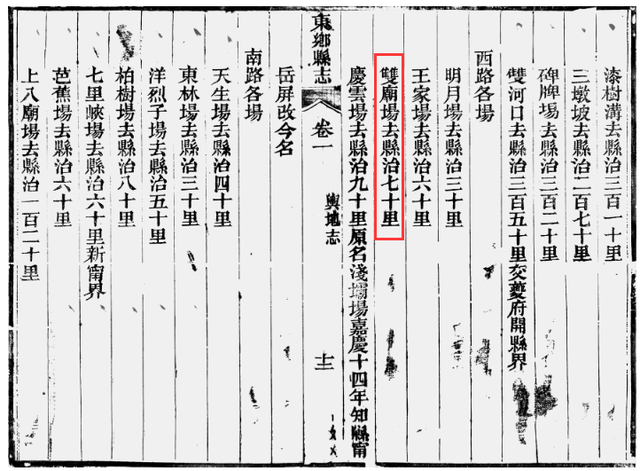 漆樹溝去縣治三百一十里
三墩坡去縣治二百七十里
碑牌場去縣治三百二十里
雙河口去縣治三百五十里交夔府開縣界
西路各場
明月場去縣治三十里
王家場去縣治六十里
雙廟場去縣治七十里
慶雲場去縣治九十里原名淺壩場嘉慶十四年知縣甯
東鄉縣志
卷一
輿地志
十三
岳屏改今名
南路各場
天生場去縣治四十里
東林場去縣治三十里
洋烈子場去縣治五十里
柏樹場去縣治八十里
七里峽場去縣治六十里新甯界
芭蕉場去縣治六十里
上八廟場去縣治一百二十里